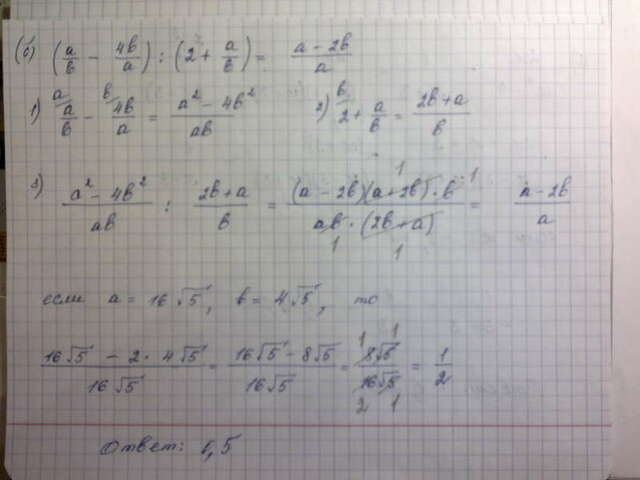 (б) (a/b - 4b/a) : (2 + a/b) = (a - 2b)/a
1) ᵃ⁄ a/b - ᵇ⁄ 4b/a = (a² - 4b²)/ab   2) ᵇ⁄ 2 + a/b = (2b + a)/b
3) (a² - 4b²)/ab : (2b + a)/b = ((a - 2b)(a + 2b)¹ · b¹)/(ab₁ · (2b + a)₁) = (a - 2b)/a
если a = 16√5, b = 4√5, то
(16√5 - 2 · 4√5)/16√5 = (16√5 - 8√5)/16√5 = ¹8√5¹/₂16√5₁ = 1/2
Ответ: 0,5